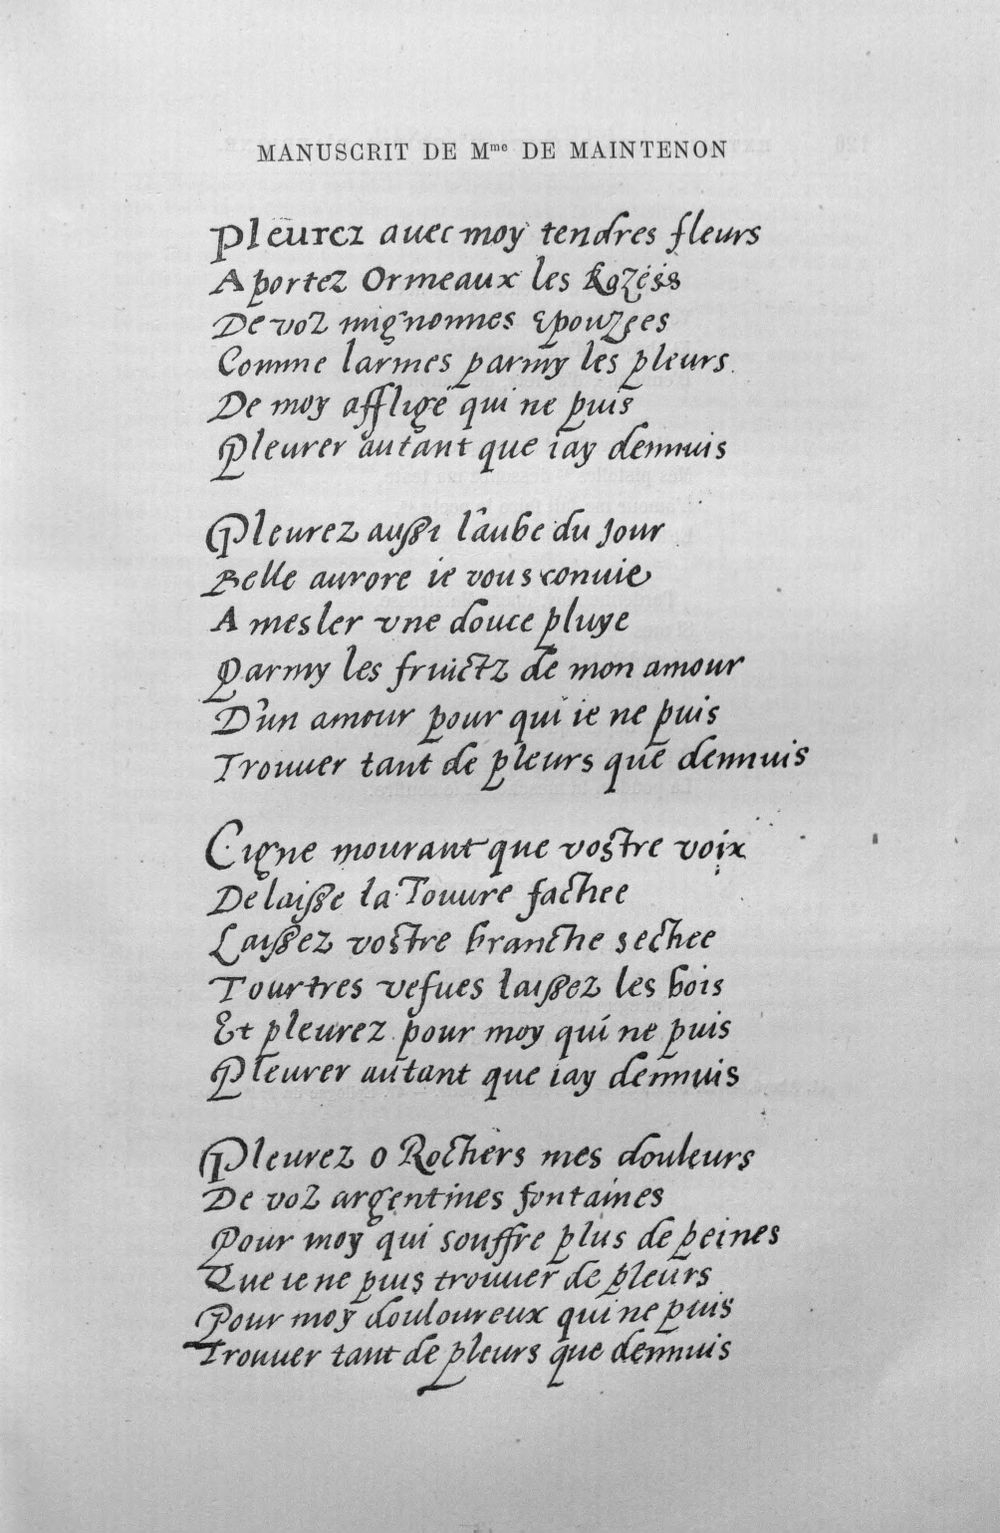 MANUSCRIT DE Mme DE MAINTENON
Pleurez auec moy tendres fleurs
Aportez Ormeaux les Rozees
De voz mignonnes epouzees
Comme larmes parmy les pleurs.
De moy affligé qui ne puis
Pleurer autant que iay dennuis
Pleurez aussi l'aube du Jour
Belle aurore ie vous conuie
A mesler vne douce pluye
Parmy les fruictz de mon amour
D'un amour pour qui ie ne puis
Trouuer tant de pleurs que dennuis
Cigne mourant que vostre voix
Delaisse la Touure fachee
Laissez vostre branche sechee
Tourtres vefues laissez les bois
Et pleurez pour moy qui ne puis
Pleurer autant que iay dennuis
Pleurez o Rochers mes douleurs
De voz argentines fontaines
Pour moy qui souffre plus de peines
Que ie ne puis trouuer de pleurs
Pour moy douloureux qui ne puis
Trouuer tant de pleurs que dennuis